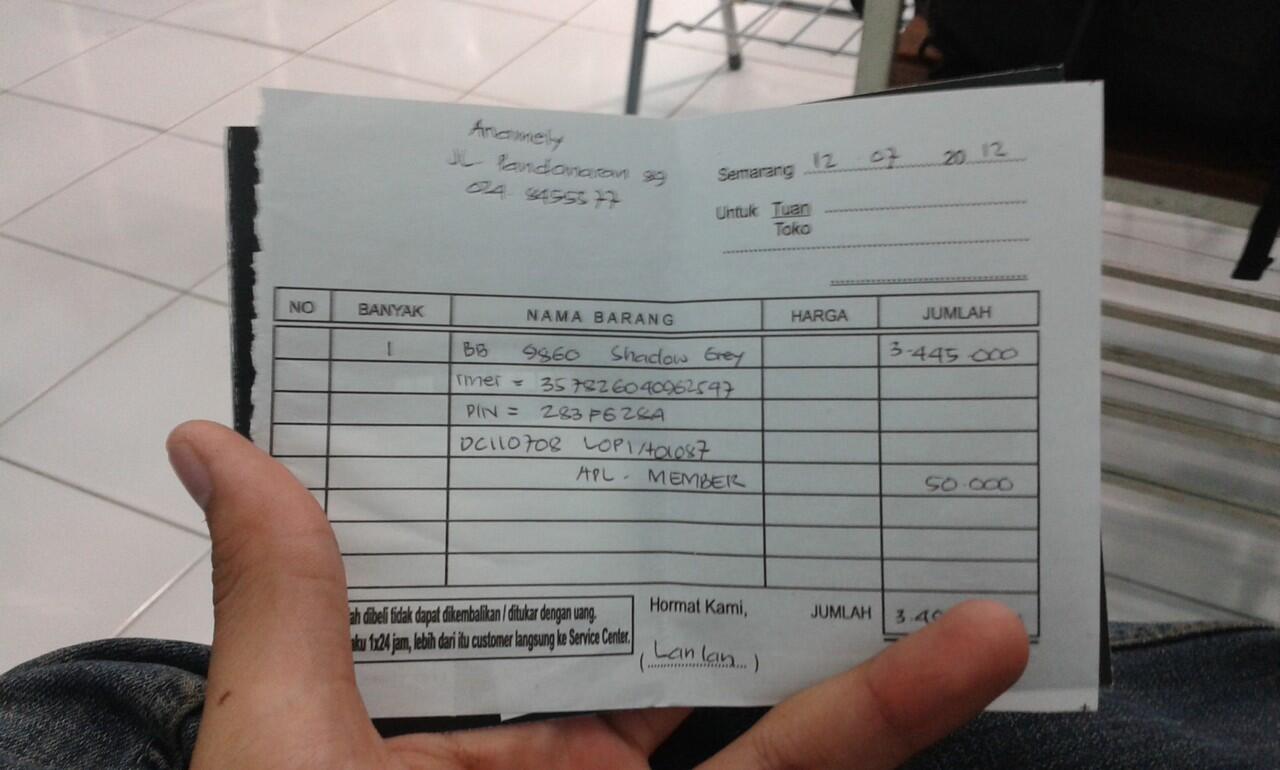 JL Pandanaran 89
024 8455577
Semarang 12 07 2012
Untuk Tuan
Toko
NO BANYAK NAMA BARANG HARGA JUMLAH
1 BB 9860 Shadow Grey 3.445.000
Imei = 357826040962597
PIN = 283F628A
DC110708
APL - MEMBER 50.000
ah dibeli tidak dapat dikembalikan / ditukar dengan uang.
aku 1x24 jam, lebih dari itu customer langsung ke Service Center.
Hormat Kami,
(Lan lan)
JUMLAH 3.4